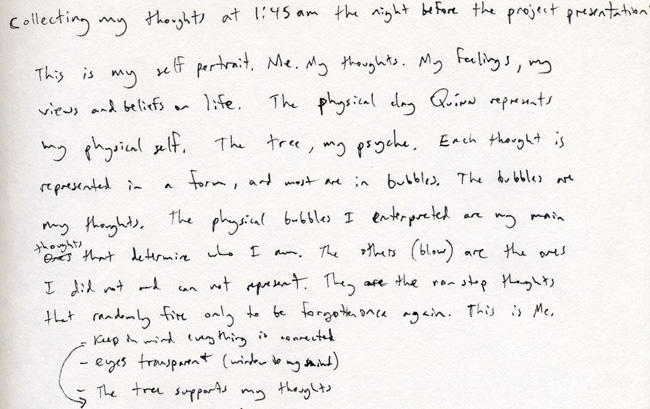 Collecting my thoughts at 1:45 am the night before the project presentation
This is my self portrait. Me. My thoughts. My feelings, my
views and beliefs on life. The physical clay Quinn represents
my physical self. The tree, my psyche. Each thought is
represented in a form, and most are in bubbles. The bubbles are
my thoughts. The physical bubbles I enterpreted are my main
thoughts that determine who I am. The others (blow) are the ones
I did not and can not represent. They are the non stop thoughts
that randomly fire only to be forgotten once again. This is Me.
- Keep in mind everything is connected
- eyes transparent (window to my mind)
- The tree supports my thoughts